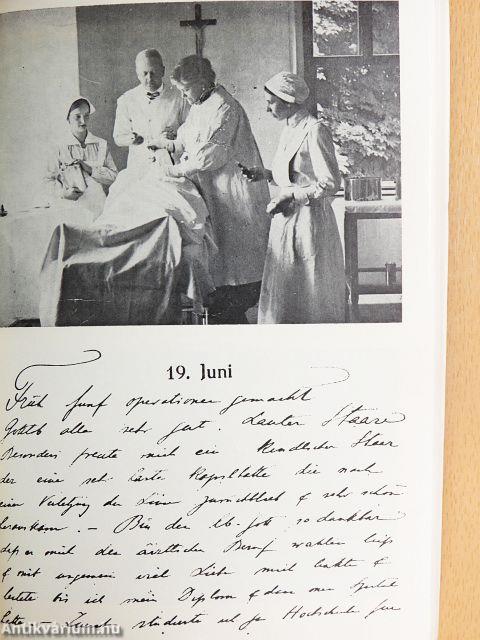 19. Juni
Früh fünf operationen gemacht
Gottlb alle sehr gut. Lauter Staare
Besonders freute mich ein Kindlicher Staar
der eine seh. harte Kapsel hatte die nach
einer Verletzung der Linse zurückblieb & sehr schön
herauskam. – Bin dem lb. Gott so dankbar
daß er mich den ärztlichen Beruf wählen ließ
& mit ungemein viel Liebe mich lenkte &
leitete bis ich mein Diplom & dann mein Spital
hatte – Zuerst studierte ich ja Hochschule für
Antikvarium.hu